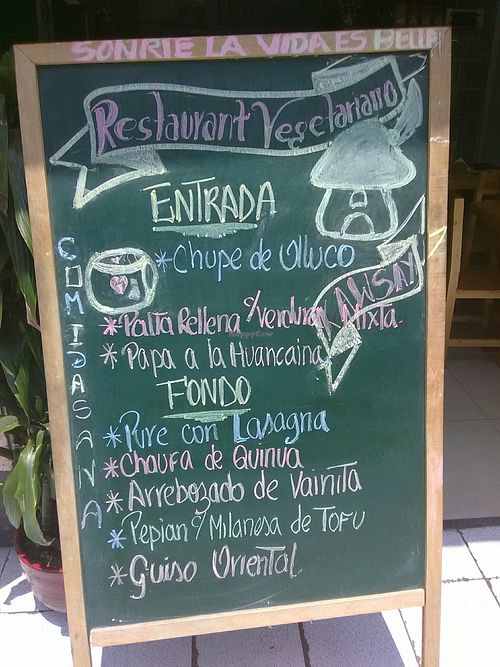 SONRIE LA VIDA ES BELLA
Restaurant Vegetariano
ENTRADA
* Chupe de Olluco
KAWSAY
* Palta Rellena c/ Verdura Mixta
* Papa a la Huancaina
FONDO
* Pure con Lasagna
* Chaufa de Quinua
* Arrebozado de Vainita
* Pepian c/ Milanesa de Tofu
* Guiso Oriental
COMIDA SANA
HappyCow